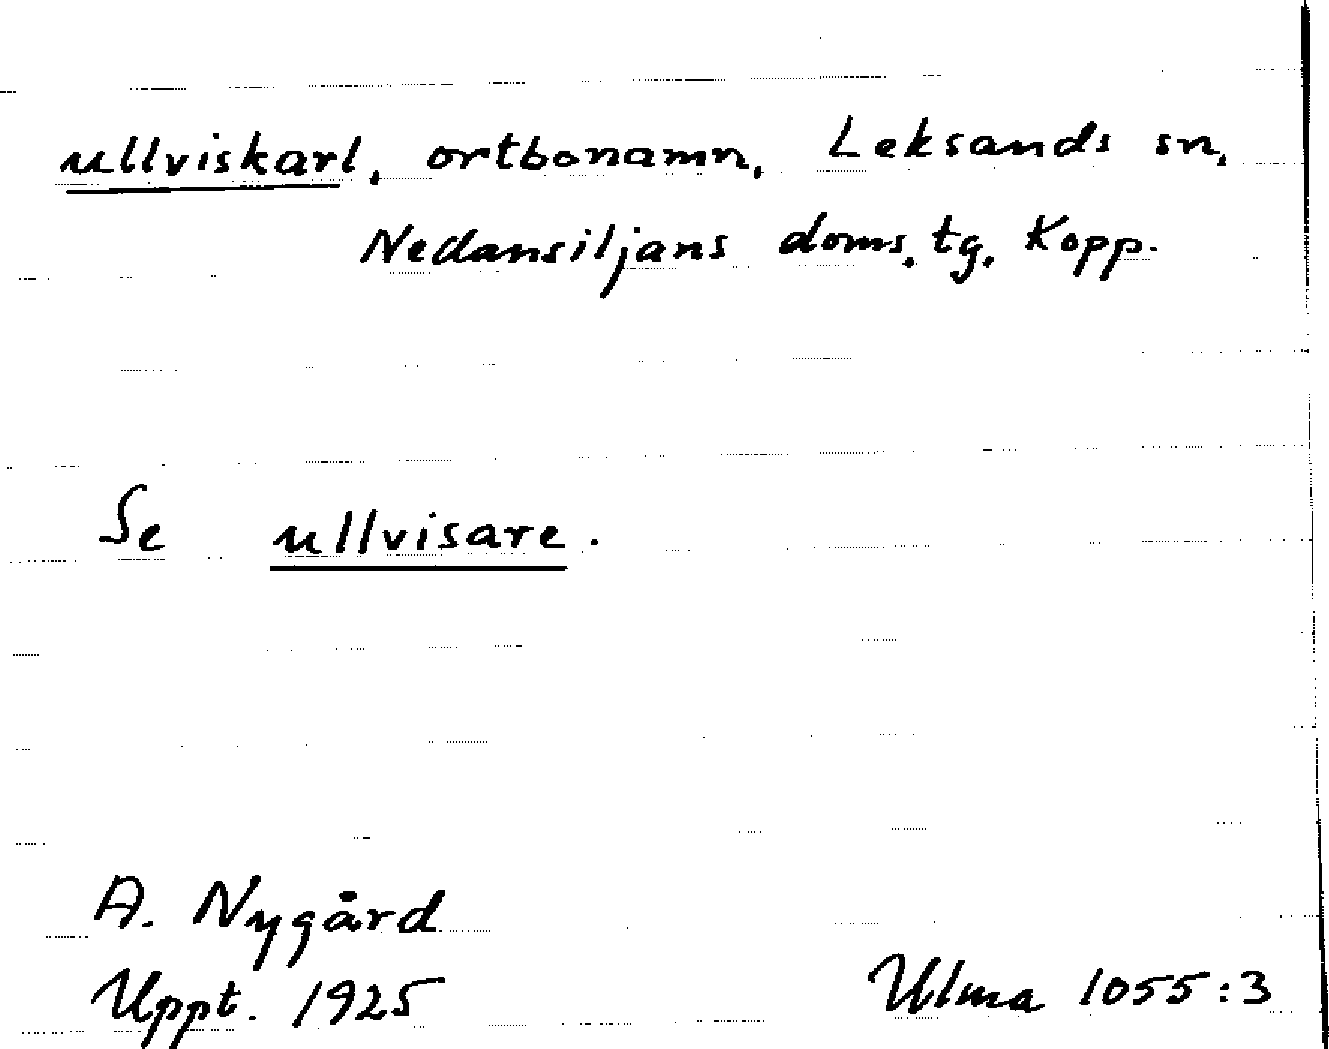 ullviskarl, ortbonamn, Leksands sn,
Nedansiljans doms. tg. Kopp.
Se ullvisare.
A. Nygård
Uppt. 1925
Ulma 1055:3